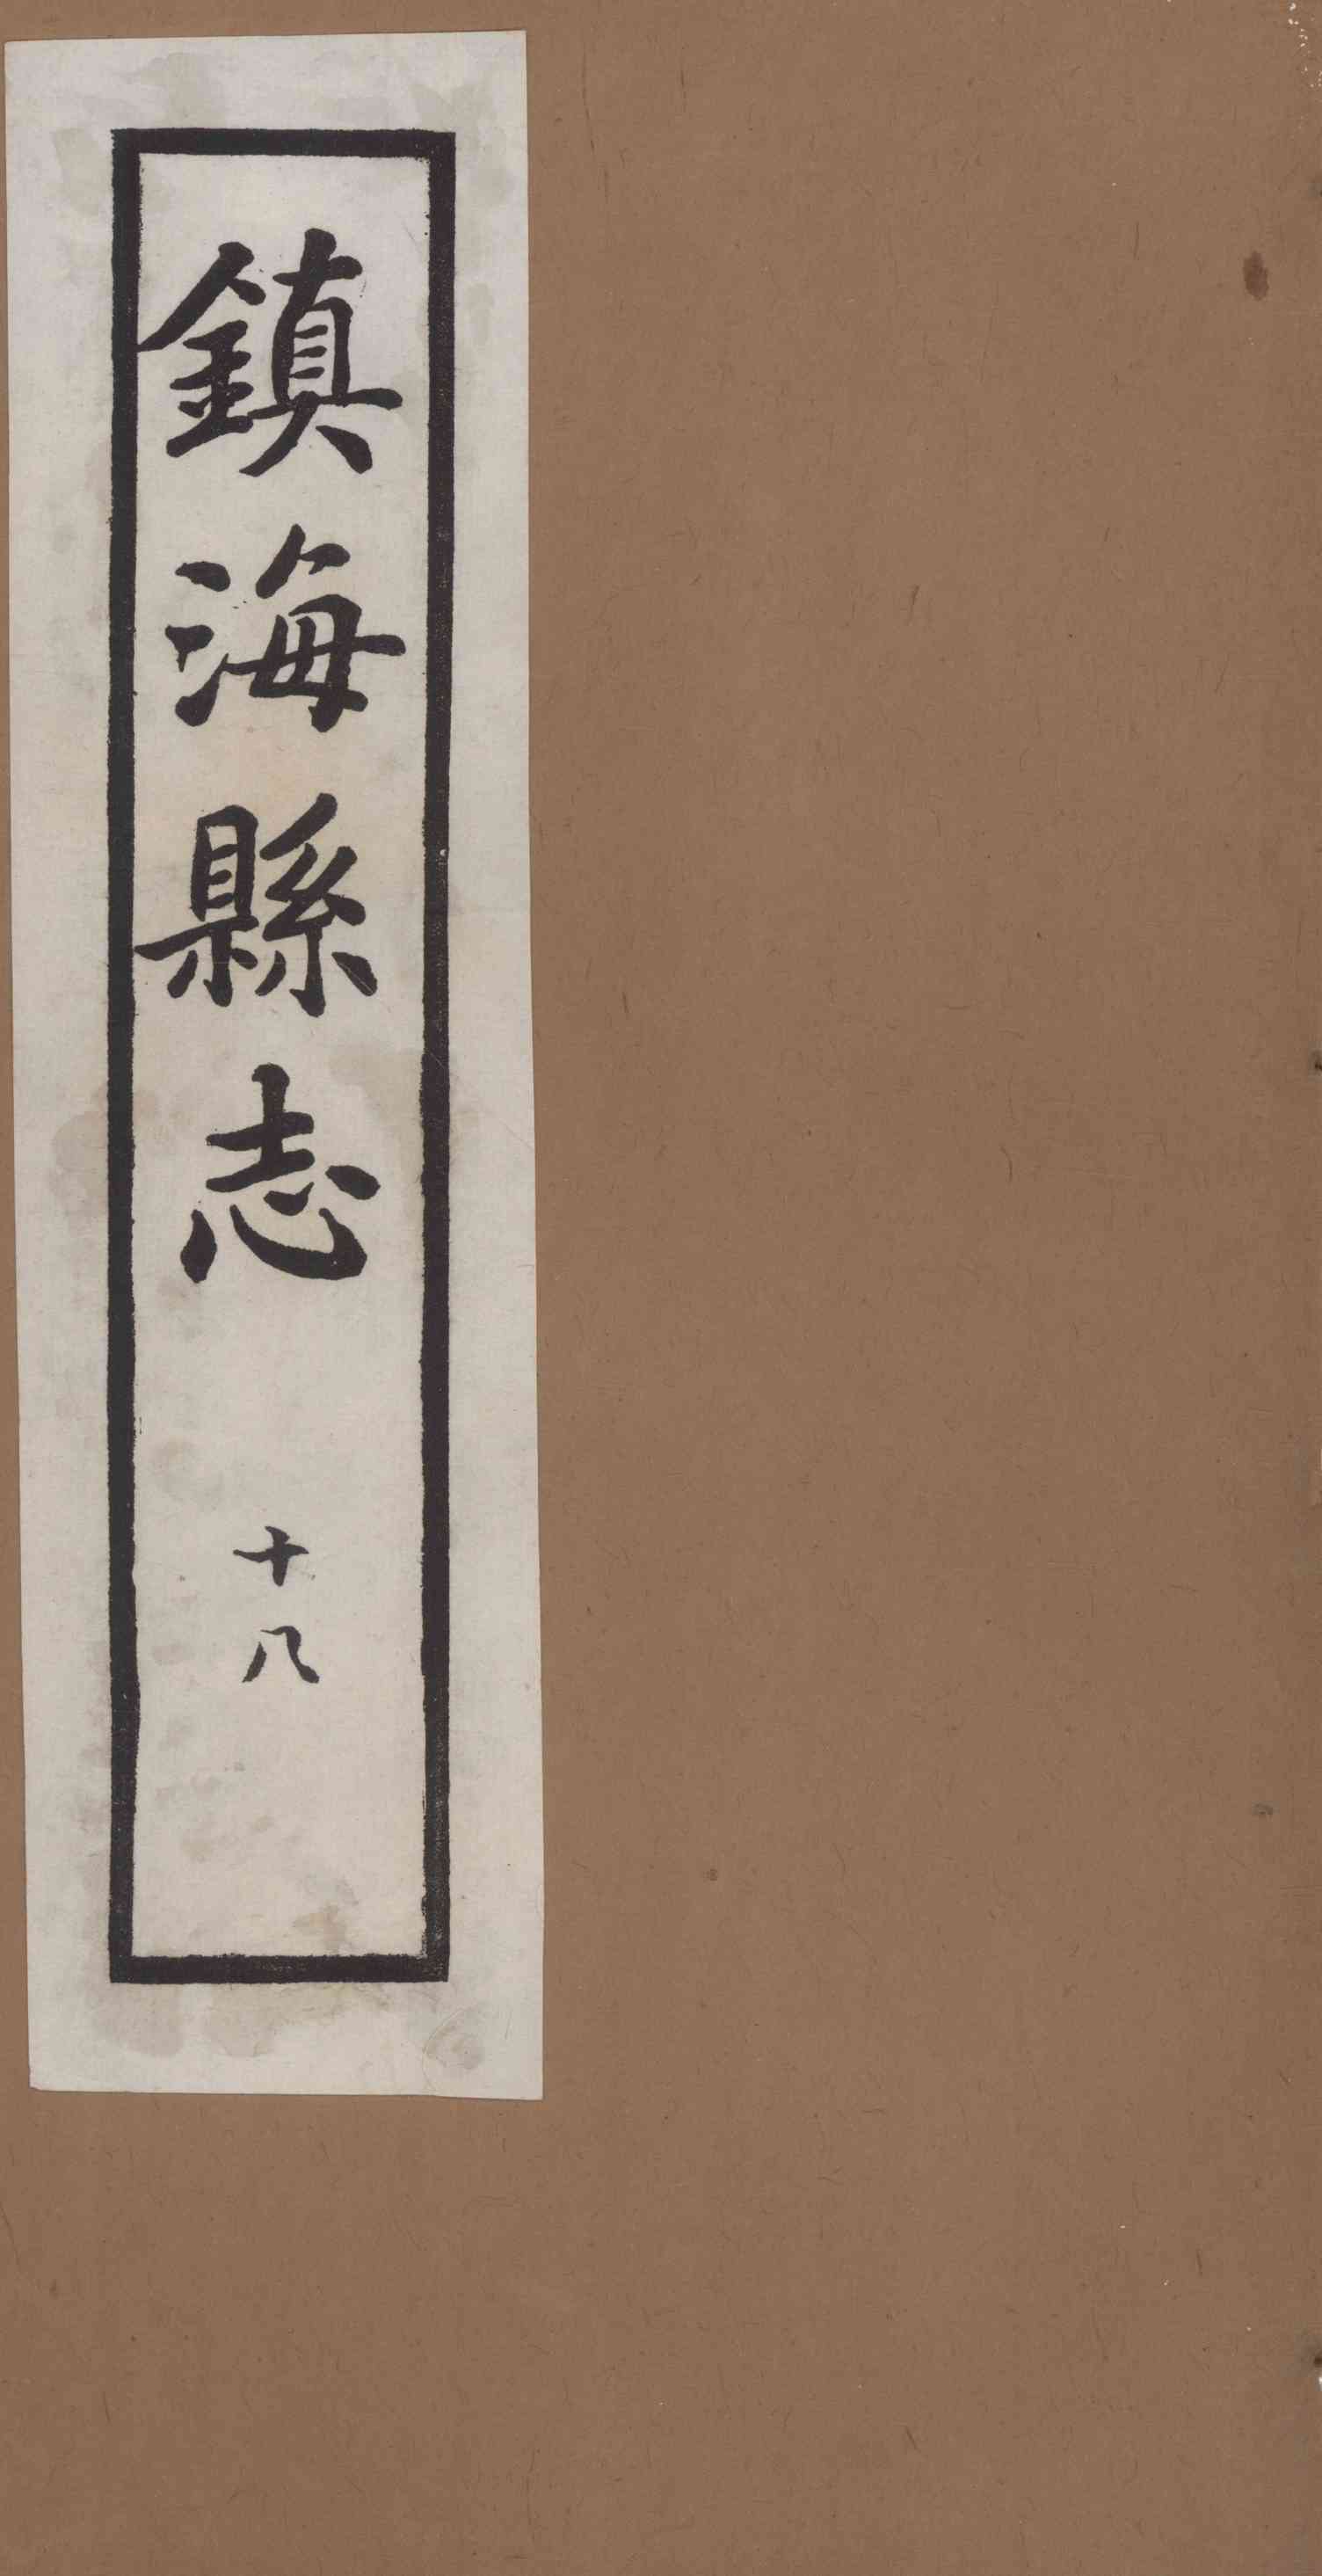 鎮海縣志
十八